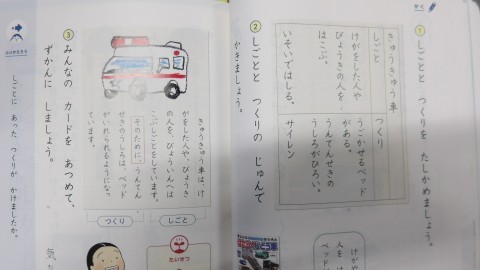 かく
① しごとと つくりを たしかめましょう。
きゅうきゅう車
しごと
けがをした人や
びょうきの人を、
はこぶ。
いそいではしる。
つくり
うごかせるベッド
がある。
うんてんせきの
うしろがひろい。
サイレン
② しごとと つくりの じゅんで
かきましょう。
きゅうきゅう車は、け
がをした人や、びょうき
の人を、びょういんへは
こぶしごとをしています。
そのために、うんてん
せきのうしろは、ベッド
がいれられるようになっ
ています。
しごと
つくり
③ みんなの カードを あつめて、
ずかんに しましょう。
しごとに あった つくりが かけましたか。
たいせつ